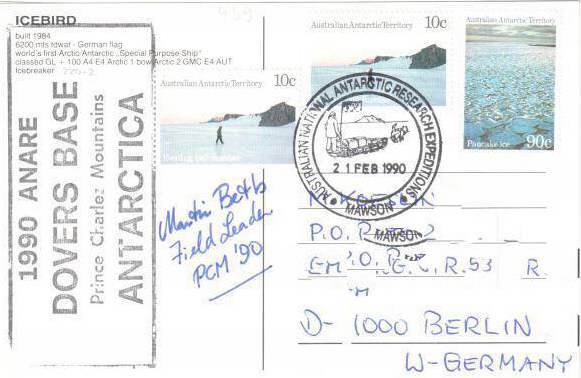 ICEBIRD
built 1984
6200 mts tdwat - German flag
world's first Arctic/Antarctic „Special Purpose Ship"
classed GL + 100 A4 E4 Arctic 1 bow Arctic 2 GMC E4 AUT
Icebreaker
1990 ANARE
DOVERS BASE
Prince Charlez Mountains
ANTARCTICA
Australian Antarctic Territory 10c
Australian Antarctic Territory 10c
Australian Antarctic Territory
Pancake ice 90c
AUSTRALIAN NATIONAL ANTARCTIC RESEARCH EXPEDITIONS
21 FEB 1990
MAWSON
MAWSON
Martin Betts
Field Leader
PCM '90
P.O.
R.53 R.
D- 1000 BERLIN
W-GERMANY